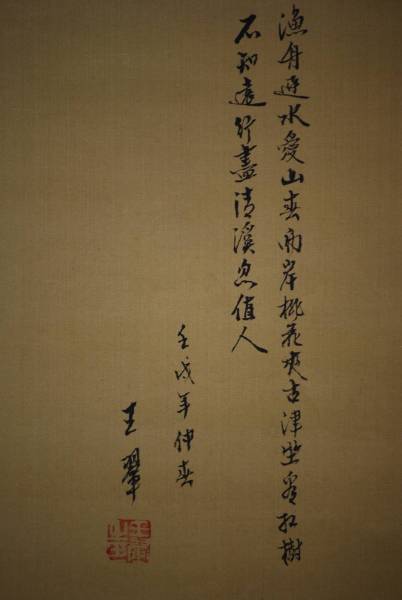 漁舟逐水愛山春兩岸桃花夾古津坐看紅樹
不知遠行盡清溪忽值人
壬戌年仲春
王翬